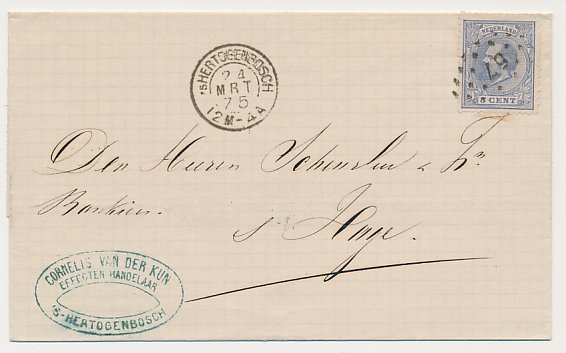 'sHERTOGENBOSCH
24
MRT
75
12M-4A
NEDERLAND
5 CENT
57
Den Heeren Scheurleer & Zn
Bankiers
s' Hage.
CORNELIS VAN DER KUN
EFFECTEN HANDELAAR
'S-HERTOGENBOSCH